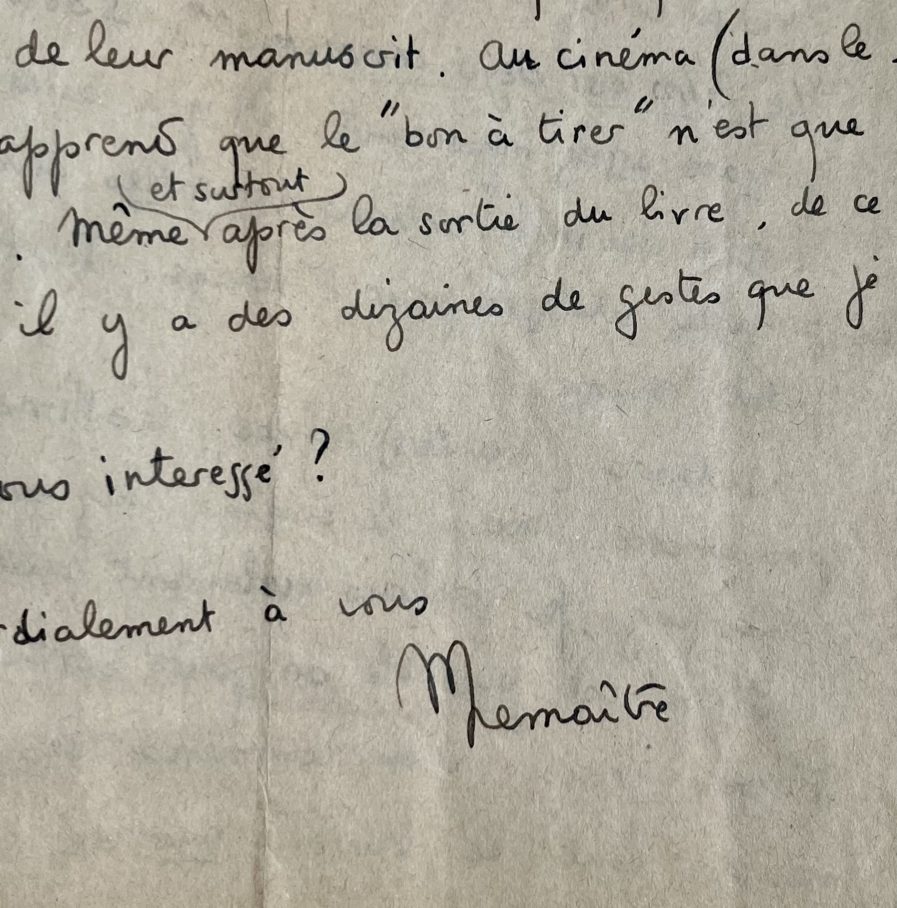 de leur manuscrit. Au cinéma (dans le
apprend que le "bon à tirer" n'est que
(et surtout)
. Même après la sortie du livre, de ce
il y a des dizaines de gestes que je
ous interessé ?
rdialement à vous
MLemaître